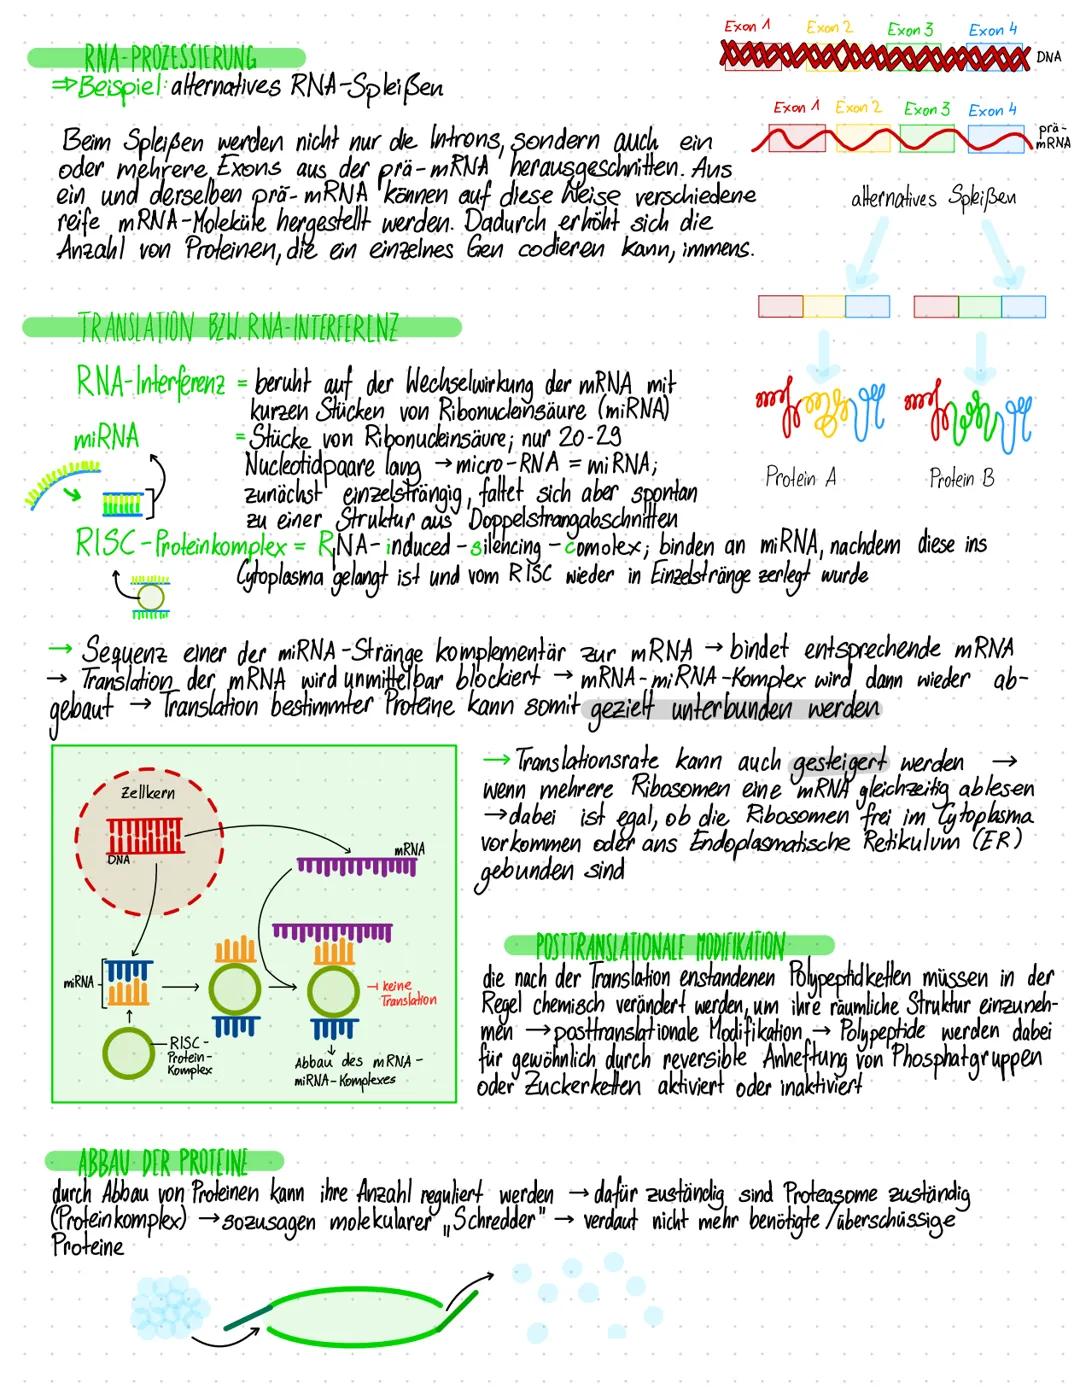 RNA-PROZESSIERUNG
⇒Beispiel: alternatives RNA-Spleißen
Beim Spleißen werden nicht nur die Introns, sondern auch ein
oder mehrere Exons aus der prä-mRNA herausgeschnitten. Aus
ein und derselben prä-mRNA können auf diese Weise verschiedene
reife mRNA-Moleküle hergestellt werden. Dadurch erhöht sich die
Anzahl von Proteinen, die ein einzelnes Gen codieren kann, immens.
Exon 1 Exon 2 Exon 3 Exon 4
DNA
Exon 1 Exon 2 Exon 3 Exon 4
prä-
mRNA
alternatives Spleißen
Protein A Protein B
TRANSLATION BZW. RNA-INTERFERENZ
RNA-Interferenz = beruht auf der Wechselwirkung der mRNA mit
kurzen Stücken von Ribonucleinsäure (miRNA)
miRNA = Stücke von Ribonucleinsäure; nur 20-29
Nucleotidpaare lang → micro-RNA = miRNA;
zunächst einzelsträngig, faltet sich aber spontan
zu einer Struktur aus Doppelstrangabschnitten
RISC-Proteinkomplex = RNA-induced-silencing-comolex; binden an miRNA, nachdem diese ins
Cytoplasma gelangt ist und vom RISC wieder in Einzelstränge zerlegt wurde
→ Sequenz einer der miRNA-Stränge komplementär zur mRNA → bindet entsprechende mRNA
→ Translation der mRNA wird unmittelbar blockiert → mRNA-miRNA-Komplex wird dann wieder ab-
gebaut → Translation bestimmter Proteine kann somit gezielt unterbunden werden
Zellkern
DNA
mRNA
miRNA
keine
Translation
RISC-
Protein-
Komplex
Abbau des mRNA-
miRNA-Komplexes
→ Translationsrate kann auch gesteigert werden →
wenn mehrere Ribosomen eine mRNA gleichzeitig ablesen
→ dabei ist egal, ob die Ribosomen frei im Cytoplasma
vorkommen oder ans Endoplasmatische Retikulum (ER)
gebunden sind
POSTTRANSLATIONALE MODIFIKATION
die nach der Translation enstandenen Polypeptidketten müssen in der
Regel chemisch verändert werden, um ihre räumliche Struktur einzuneh-
men → posttranslationale Modifikation → Polypeptide werden dabei
für gewöhnlich durch reversible Anheftung von Phosphatgruppen
oder Zuckerketten aktiviert oder inaktiviert
ABBAU DER PROTEINE
durch Abbau von Proteinen kann ihre Anzahl reguliert werden → dafür zuständig sind Proteasome zuständig
(Proteinkomplex) → sozusagen molekularer „Schredder" → verdaut nicht mehr benötigte/überschüssige
Proteine